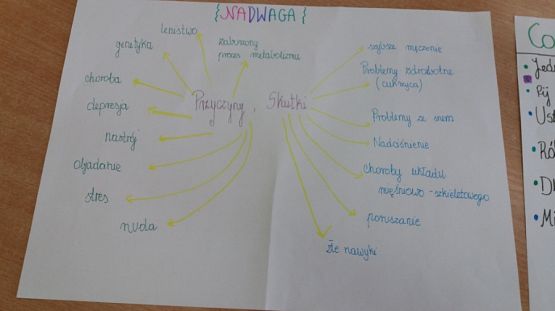 {NADWAGA}
lenistwo
genetyka
zaburzony
proces metabolizmu
choroba
depresja
nastrój
objadanie
stres
nuda
Przyczyny, Skutki
szybsze męczenie
Problemy zdrowotne
(cukrzyca)
Problemy ze snem
Nadciśnienie
Choroby układu
mięśniowo-szkieletowego
poruszanie
złe nawyki
Co
Jed
Pij
Ust
Ró